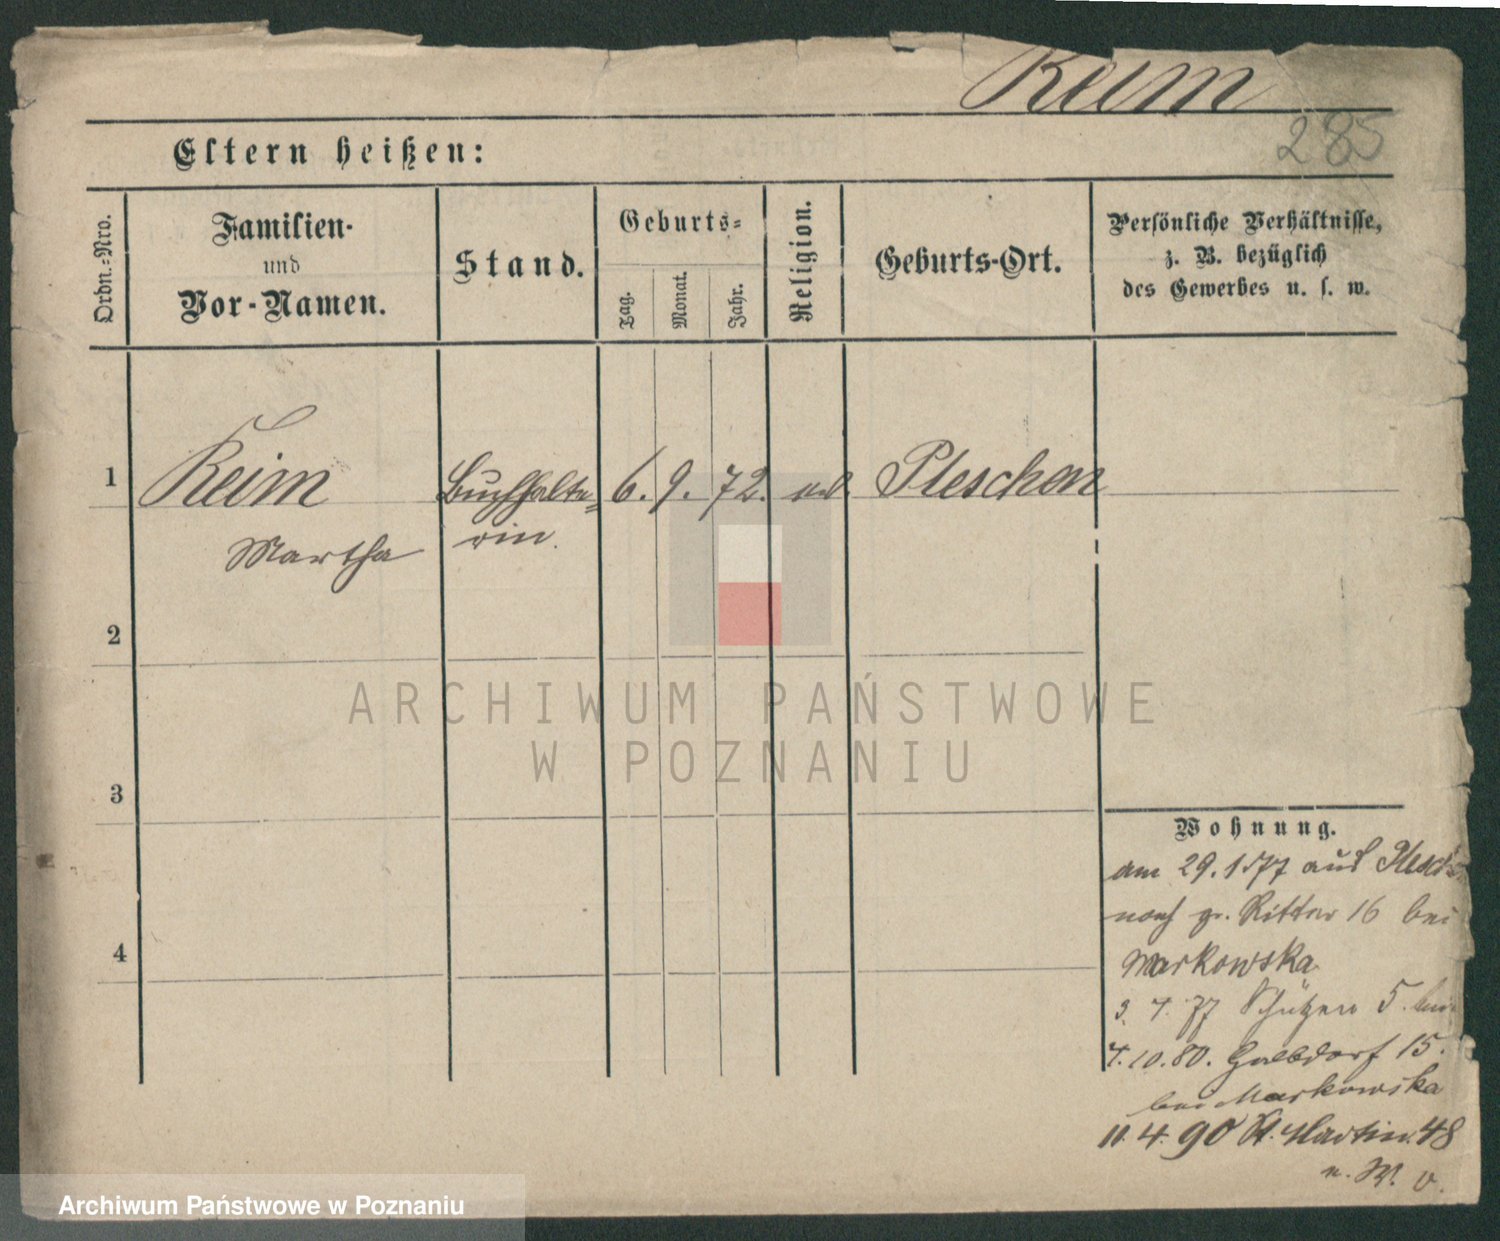 Keim
285
Eltern heißen:
Ordn.-Nro.
Familien-
und
Vor-Namen.
Stand.
Geburts-
Tag.
Monat.
Jahr.
Religion.
Geburts-Ort.
Persönliche Verhältnisse,
z. B. bezüglich
des Gewerbes u. s. w.
1
Keim
Martha
Buchhalte=
rin.
6. 9. 72.
Pleschen
2
3
4
ARCHIWUM PAŃSTWOWE
W POZNANIU
Wohnung.
am 29. 1. 77 aus Plesch
nach gr. Ritter 16 bei
Markowska
3. 4. 77 Schützen 5. bei
4. 10. 80. Halbdorf 15.
bei Markowska
11. 4. 90 St. Martin. 48
n. W. v.
Archiwum Państwowe w Poznaniu